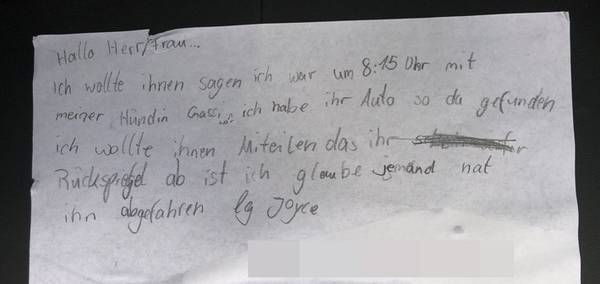 Hallo Herr/Frau...
Ich wollte ihnen sagen ich war um 8:15 Uhr mit
meiner Hündin Gassi ich habe ihr Auto so da gefunden
ich wollte ihnen Miteilen das ihr
Rückspiegel ab ist ich glaube jemand hat
ihn abgefahren lg Joyce